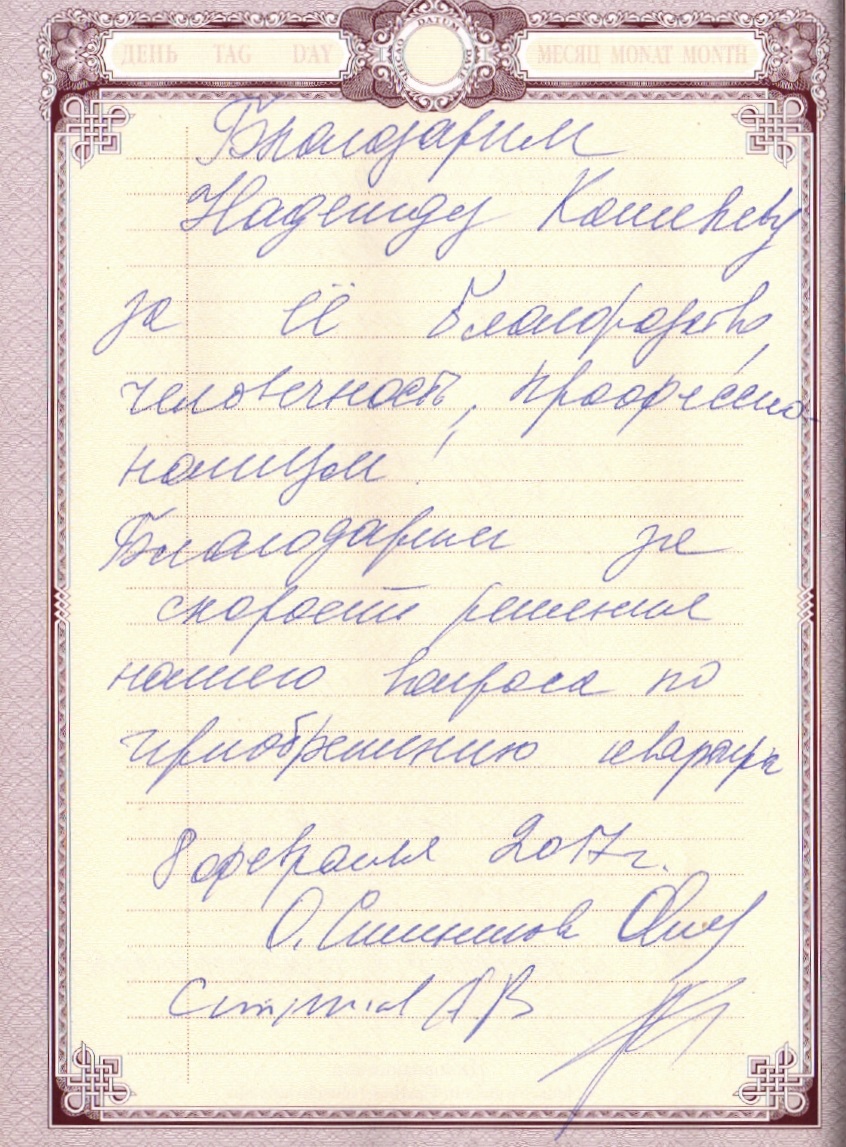 ДЕНЬ TAG DAY DATUM МЕСЯЦ MONAT MONTH
Благодарим
Надежду
за её благородство,
человечность, профессио-
нализм!
Благодарим за
скорость решения
нашего вопроса по
приобретению квартиры
8 февраля 2017г.
О.
АВ